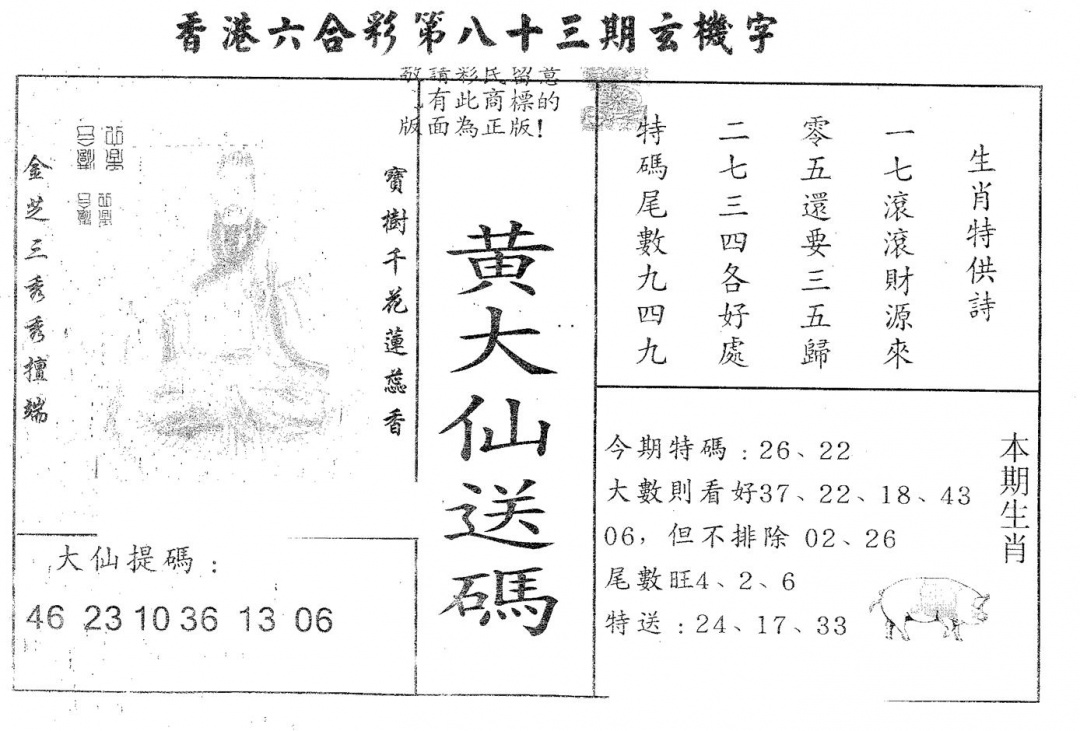 香港六合彩第八十三期玄機字
敬請彩民留意
有此商標的
版面為正版！
生肖特供詩
一七滾滾財源來
零五還要三五歸
二七三四各好處
特碼尾數九四九
黃大仙送碼
寶樹千花蓮蕊香
金芝三秀秀擅端
大仙提碼：
46 23 10 36 13 06
本期生肖
今期特碼：26、22
大數則看好37、22、18、43
06，但不排除 02、26
尾數旺4、2、6
特送：24、17、33